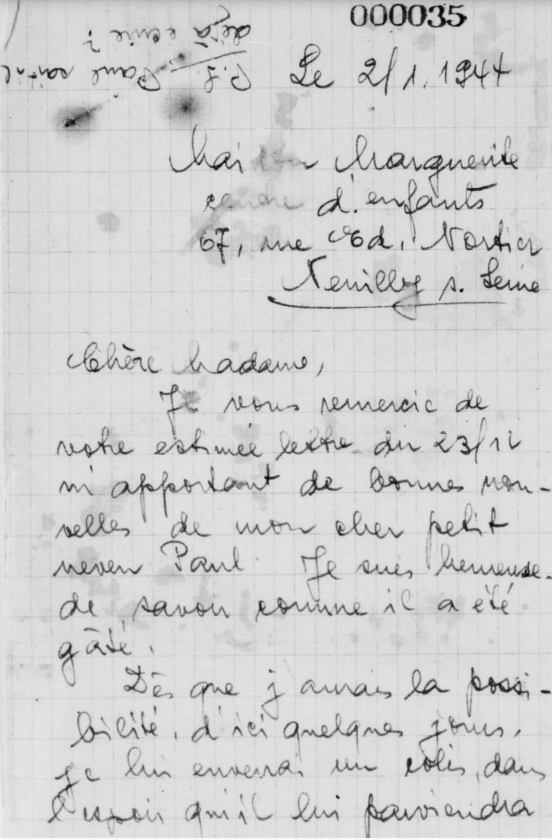 000035
P.S. Paul sait-il
déjà écrire ?
Le 2/1.1944
Maison Marguerite
d'enfants
67, rue Ed. Nortier
Neuilly s. Seine
Chère Madame,
Je vous remercie de
votre estimée lettre du 23/12
m'apportant de bonnes nou-
velles de mon cher petit
neveu Paul. Je suis heureuse
de savoir comme il a été
gâté.
Dès que j'aurais la possi-
bilité, d'ici quelques jours,
je lui enverrai un colis, dans
l'espoir qu'il lui parviendra